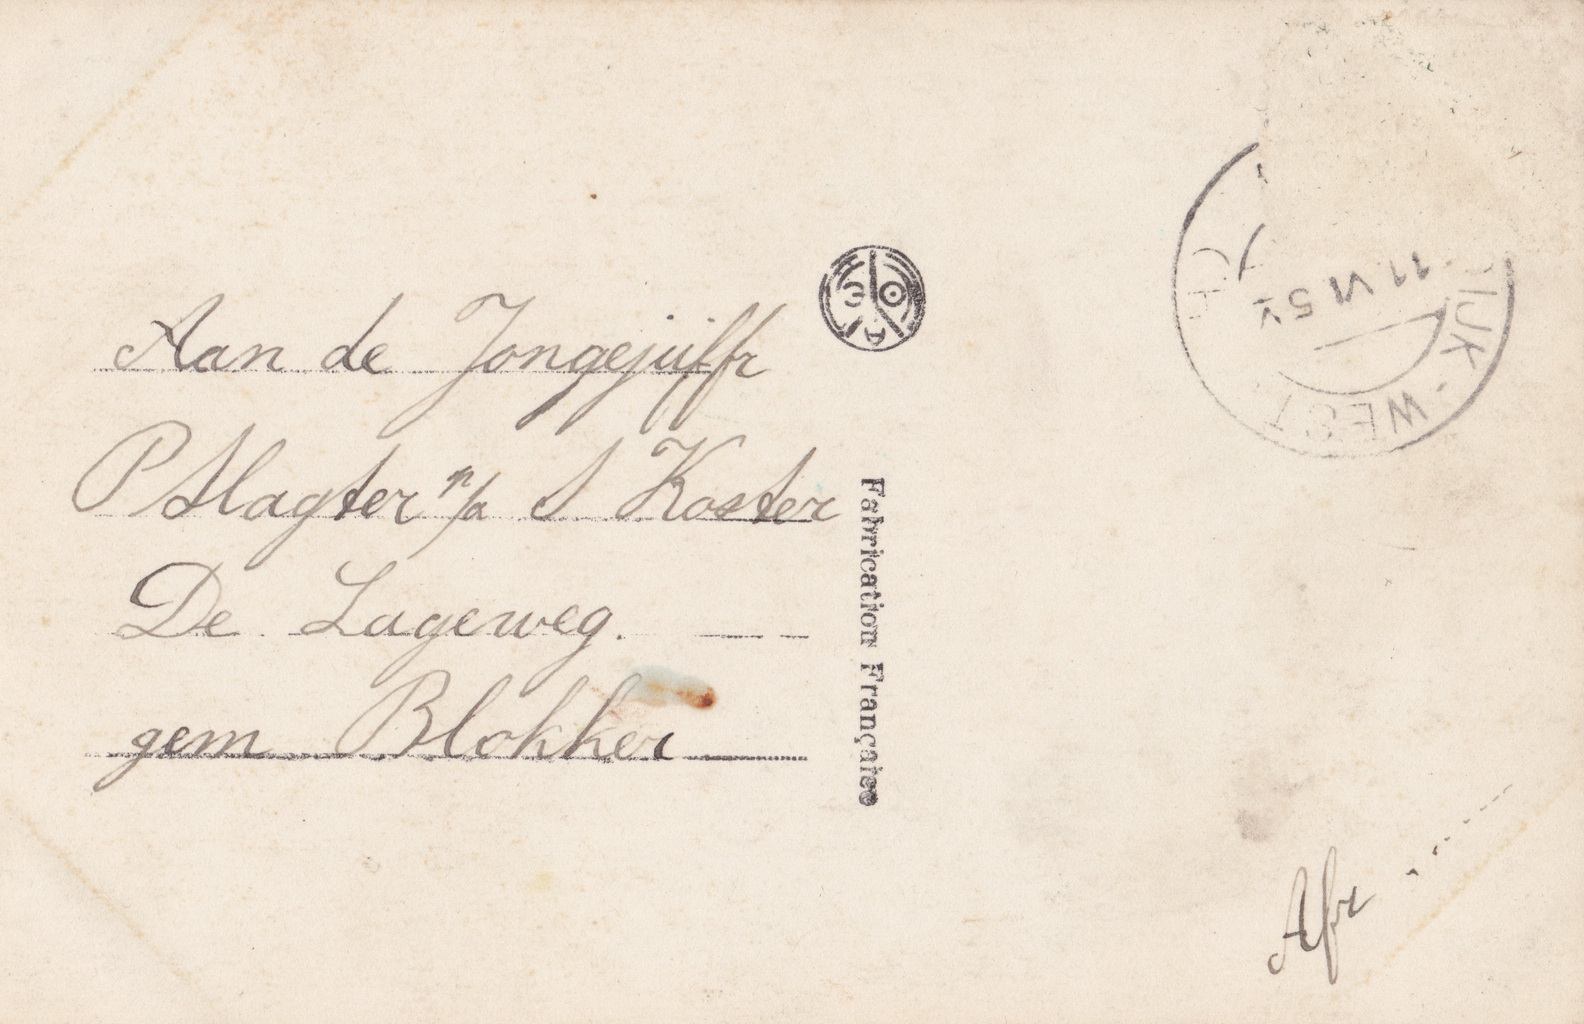 Aan de Jongejuffr
P Slagter p/a S Koster
De Lageweg.
gem Blokker
Fabrication Française
IJK - WEST
11 VI 5
Afr